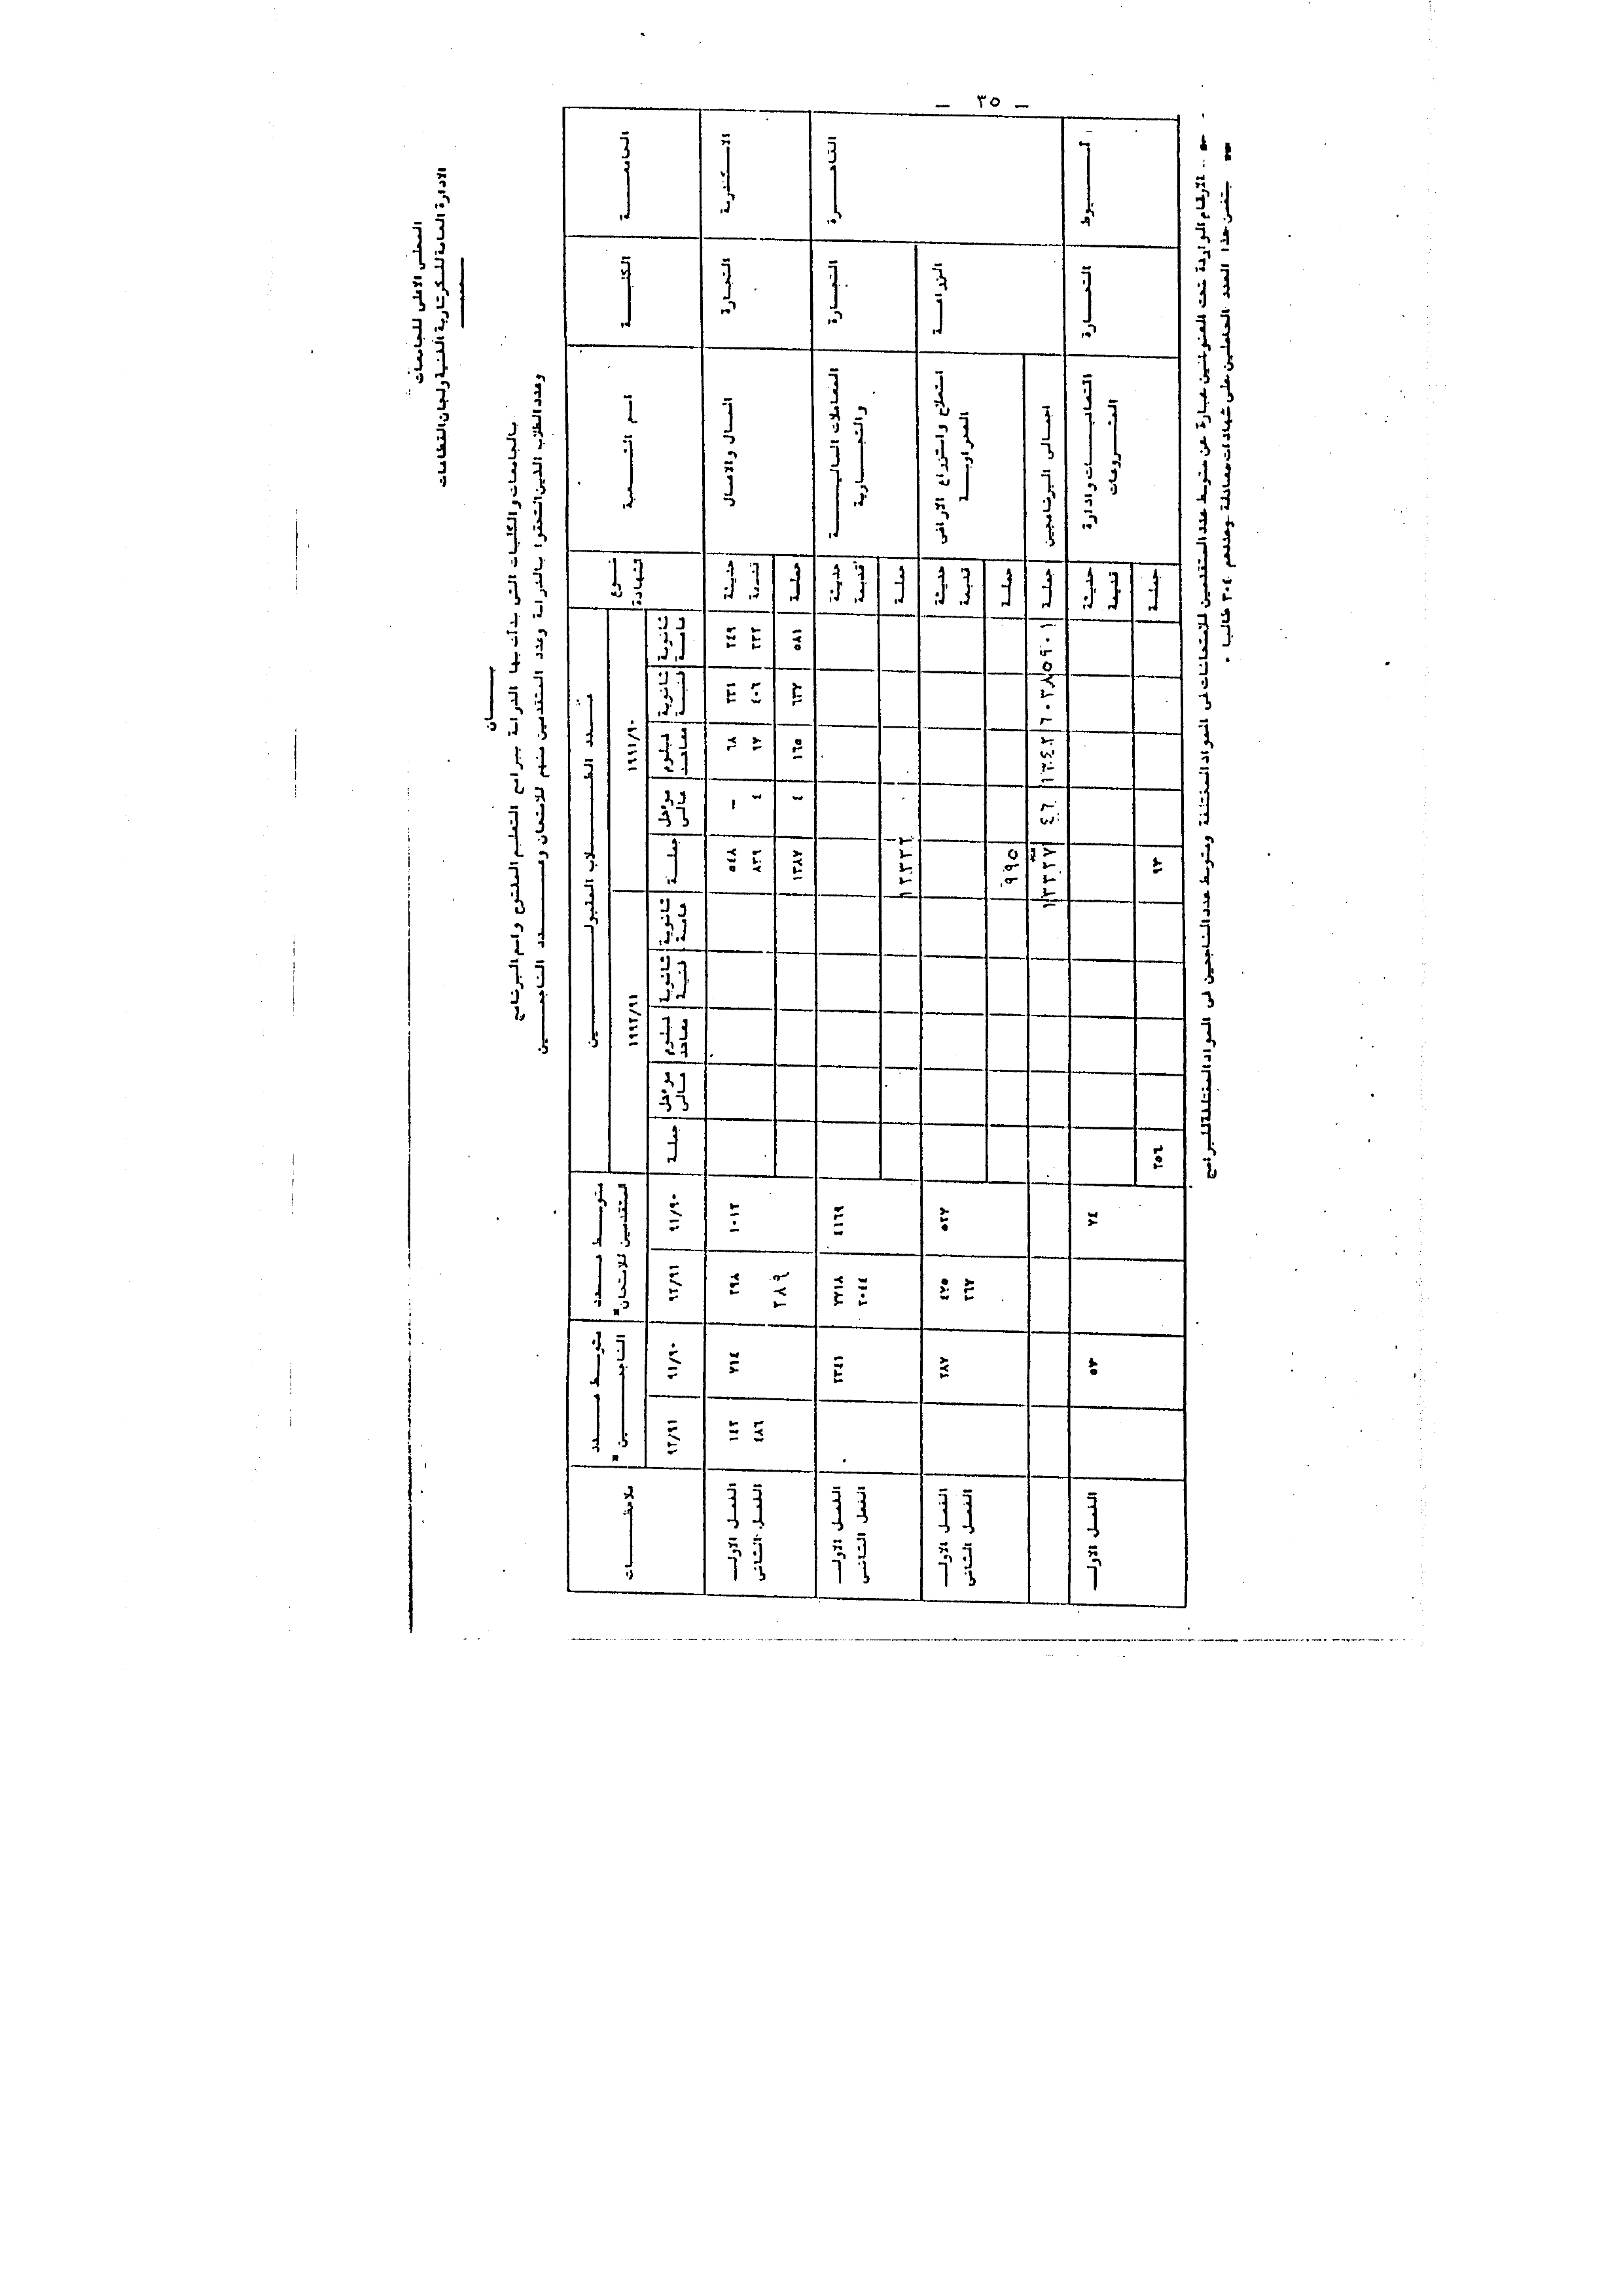 - ٣٥ -
المجلس الاعلى للجامعات
الادارة العامة للسكرتارية الفنية ولجان القطاعات
بيــــان
بالجامعات والكليات التى بدأت بها الدراسة ببرامج التعليم المفتوح واسم البرنامج
وعدد الطلاب الذين التحقوا بالدراسة وعدد المتقدمين منهم للامتحان وعـــدد الناجحــــين
الجامعــــة | الكليــــة | اسم الشــعبة | نــوع الشهادة | عــدد الطــــلاب المقبولــــين | متوســط عــدد المتقدمين للامتحان* | متوســط عــدد الناجحــــين* | ملاحظــــات
١٩٩١/٩٠ | ١٩٩٢/٩١
ثانوية عامـة | ثانوية فنيـة | دبلوم معاهد | مؤهل عالى | جملـة | ثانوية عامـة | ثانوية فنيـة | دبلوم معاهد | مؤهل عالى | جملـة | ٩١/٩٠ | ٩٢/٩١ | ٩١/٩٠ | ٩٢/٩١
الاسكندرية | التجارة | المـال والاعمال | حديثة | ٢٤٩ | ٢٣١ | ٦٨ | – | ٥٤٨ | ١٠١٢ | ٢٩٨ | ٧١٤ | ١٤٣ | الفصل الاول
قديمة | ٣٣٢ | ٤٠٦ | ٩٧ | ٤ | ٨٣٩ | ٢٨٩ | ٤٨٦ | الفصل الثانى
جملـة | ٥٨١ | ٦٣٧ | ١٦٥ | ٤ | ١٣٨٧
القاهــــرة | التجـارة | المعاملات الماليــــة والتجــارية | حديثة | ٤١٦٩ | ٢٧١٨ | ٢٣٤١ | الفصل الاول
قديمة | ٢٠٤٤ | الفصل الثانى
جملـة | ١٢٣٣٢
الزراعــــة | استصلاح واستزراع الاراضى الصحراويــة | حديثة | ٥٢٧ | ٤٢٥ | ٢٨٧ | الفصل الاول
قديمة | ٢٦٧ | الفصل الثانى
جملـة | ٩٩٥
اجمالى البرنامجين | جملـة | ٥٩٠١ | ٦٠٣٨ | ١٣٤٢ | ٤٦ | ١٣٣٢٧
أســــيوط | التجــارة | وادارة المشــروعات | حديثة | ٧٤ | ٥٣ | الفصل الاول
قديمة
جملـة | ٩٣ | ٢٥٦
* الارقام الواردة تحت العنوانين عبارة عن متوسط عدد المتقدمين للامتحانات فى المواد المختلفة ومتوسط عدد الناجحين فى المواد المختلفة للبرامج
** يتضمن هذا العدد الحاصلين على شهادات معادلة وعددهم ٣٠٤ طالبا .